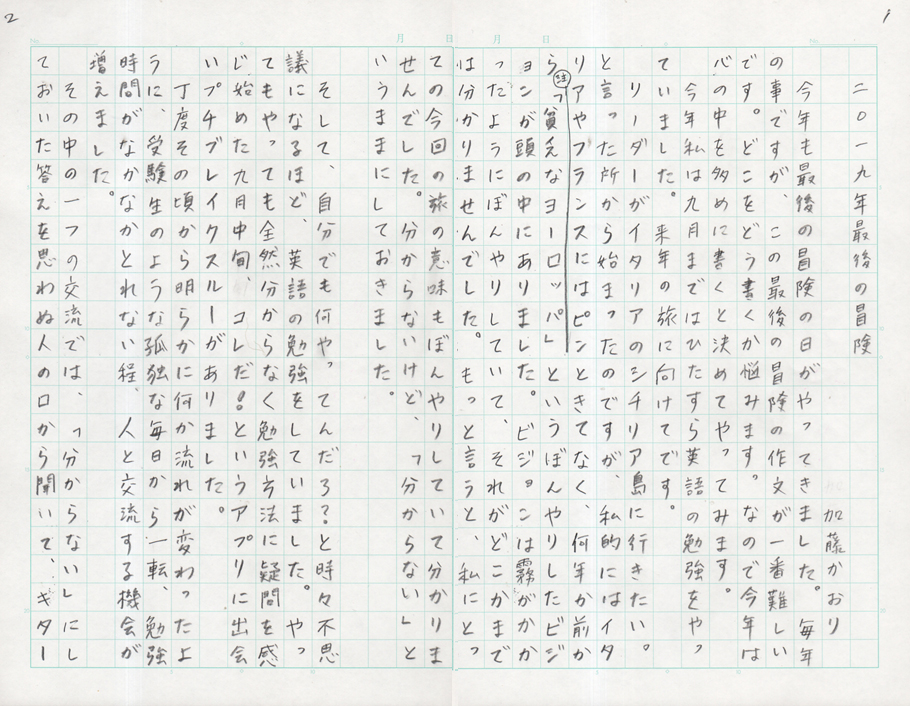 1
二〇一九年最後の冒険
加藤かおり
今年も最後の冒険の日がやってきました。毎年
の事ですが、この最後の冒険の作文が一番難しい
です。どこをどう書くか悩みます。なので今年は
バの中を多めに書くと決めてやってみます。
今年私は九月まではひたすら英語の勉強をやっ
ていました。来年の旅に向けてです。
リーダーがイタリアのシチリア島に行きたい。
と言った所から始まったのですが、私的にはイタ
リアやフランスにはピンときてなく、何年か前か
ら「貧乏なヨーロッパ」というぼんやりしたビジ
ョンが頭の中にありました。ビジョンは霧がかか
ったようにぼんやりしていて、それがどこかまで
は分かりませんでした。もっと言うと、私にとっ
2
ての今回の旅の意味もぼんやりしていて分かりま
せんでした。分からないけど、「分からない」と
いうままにしておきました。
そして、自分でも何やってんだろ？と時々不思
議になるほど、英語の勉強をしていました。やっ
てもやっても全然分からなく勉強方法に疑問を感
じ始めた九月中旬、コレだ！というアプリに出会
いプチブレイクスルーがありました。
丁度その頃から明らかに何か流れが変わったよ
うに、受験生のような孤独な毎日から一転、勉強
時間がなかなかとれない程、人と交流する機会が
増えました。
その中の一つの交流では、「分からない」にし
ておいた答えを思わぬ人の口から聞いて、ギター